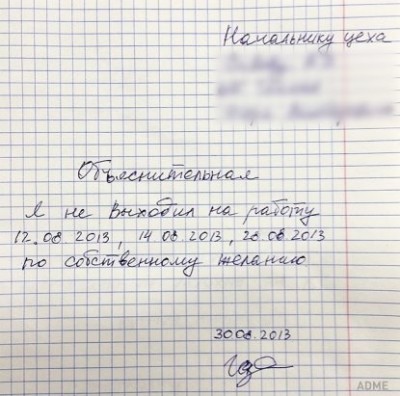 Начальнику цеха
Объяснительная
Я не выходил на работу
12.08 2013, 14 08.2013, 28.08.2013
по собственному желанию
30 08.2013
ADME